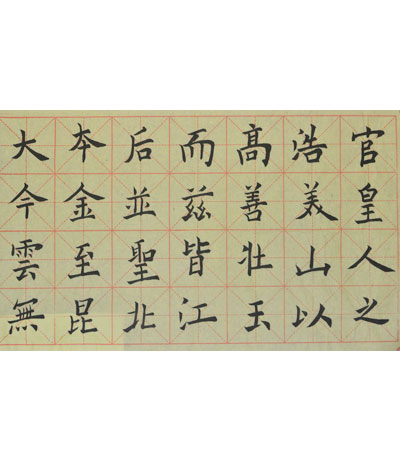 官皇人之
浩美山以
髙善壮玉
而兹皆江
后並聖北
本金至昆
大今雲無